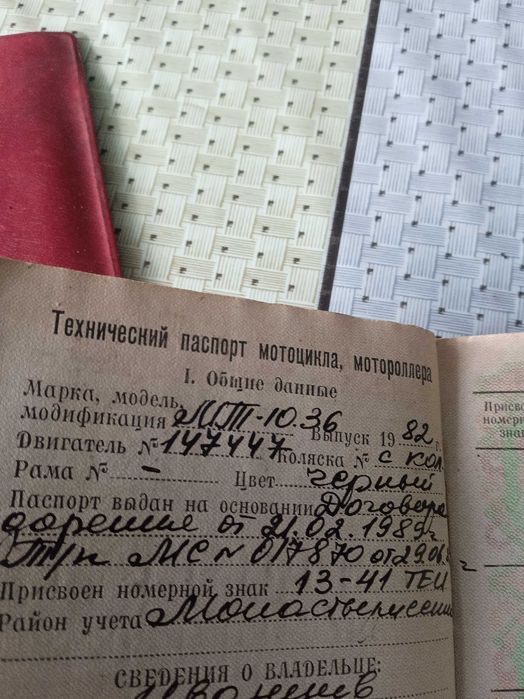 Технический паспорт мотоцикла, мотороллера
I. Общие данные
Марка, модель,
модификация МТ-10.36 Выпуск 1982 г.
Двигатель № 147447 Коляска № с кол.
Рама № - Цвет черный
Паспорт выдан на основании Договора
дарения от 21.02.1989г
МС № 017870 от 29.06.8
Присвоен номерной знак 13-41 ТЕИ
Район учета
СВЕДЕНИЯ О ВЛАДЕЛЬЦЕ:
Присв
номерн
знак